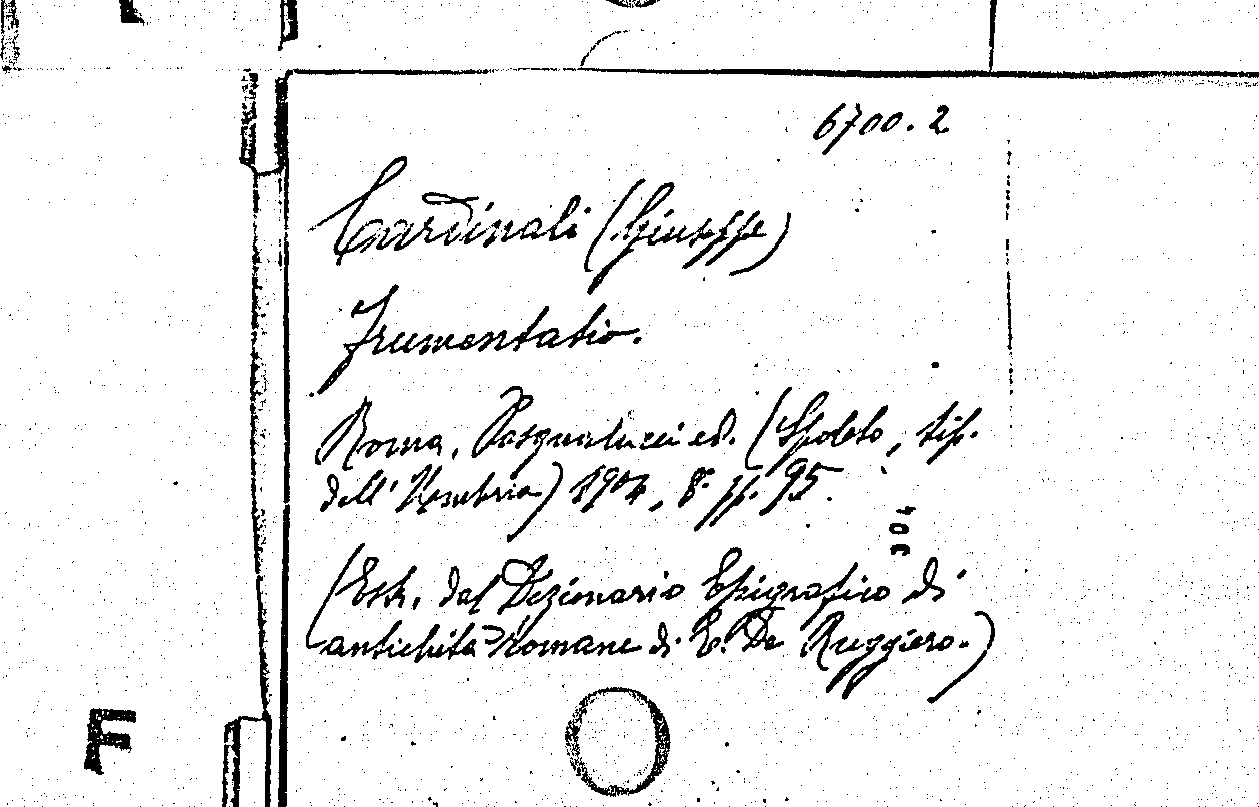 6700.2
Cardinali (Giuseppe)
Frumentatio.
Roma, Pasqualucci ed. (Spoleto, tip.
dell'Umbria) 1904, 8° pp. 95.
304
(Estr. dal Dizionario Epigrafico di
antichità romane di E. De Ruggiero.)
F